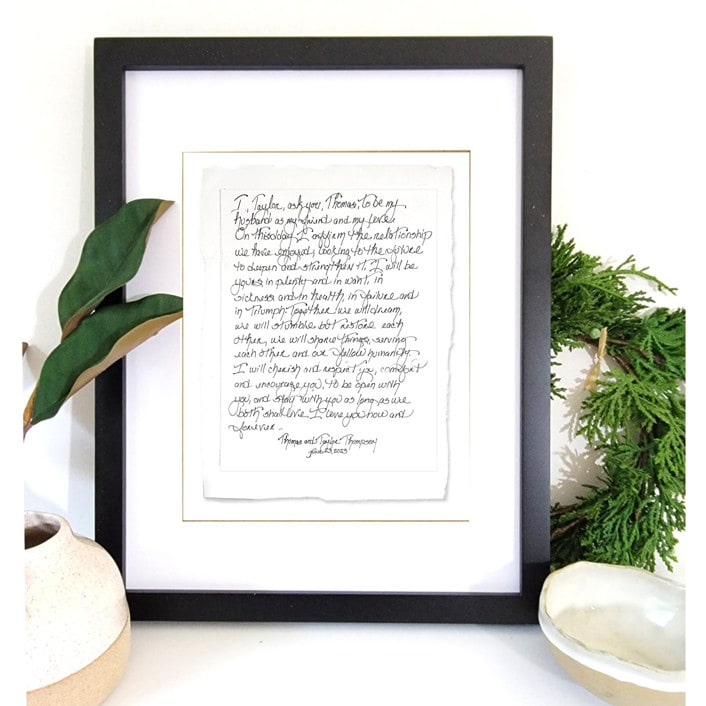 I, Taylor, ask you, Thomas to be my
husband as my friend and my love.
On this day I affirm the relationship
we have enjoyed, looking to the future
to deepen and strengthen it. I will be
yours in plenty and in want, in
sickness and in health, in failure and
in Triumph. Together we will dream,
we will stumble but restore each
other, we will share things, serving
each other and our fellow humanity.
I will cherish and respect you, comfort
and encourage you, to be open with
you, and stay with you as long as we
both shall live. I love you now and
forever.
Thomas and Taylor Thompson
23, 2023